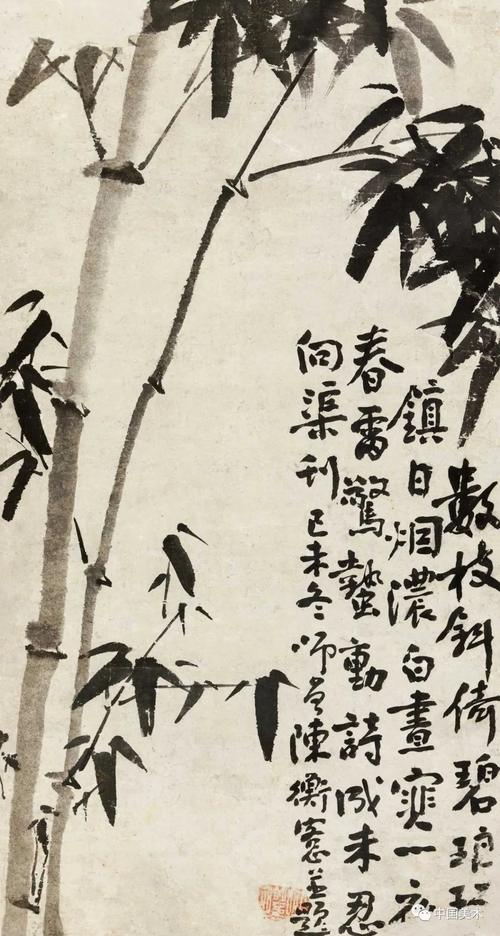 數枝斜倚碧琅玕
鎮日烟濃白晝寒一夜
春雷驚蟄動詩成未忍
向渠刊己未冬師曾陳衡愙並題
中国美术